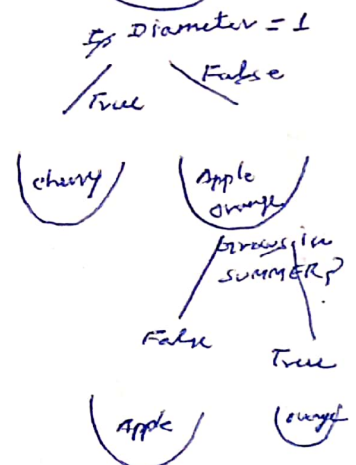 Is Diameter = 1
True
False
cherry
Apple
orange
Grows in
SUMMER?
False
True
Apple
orange